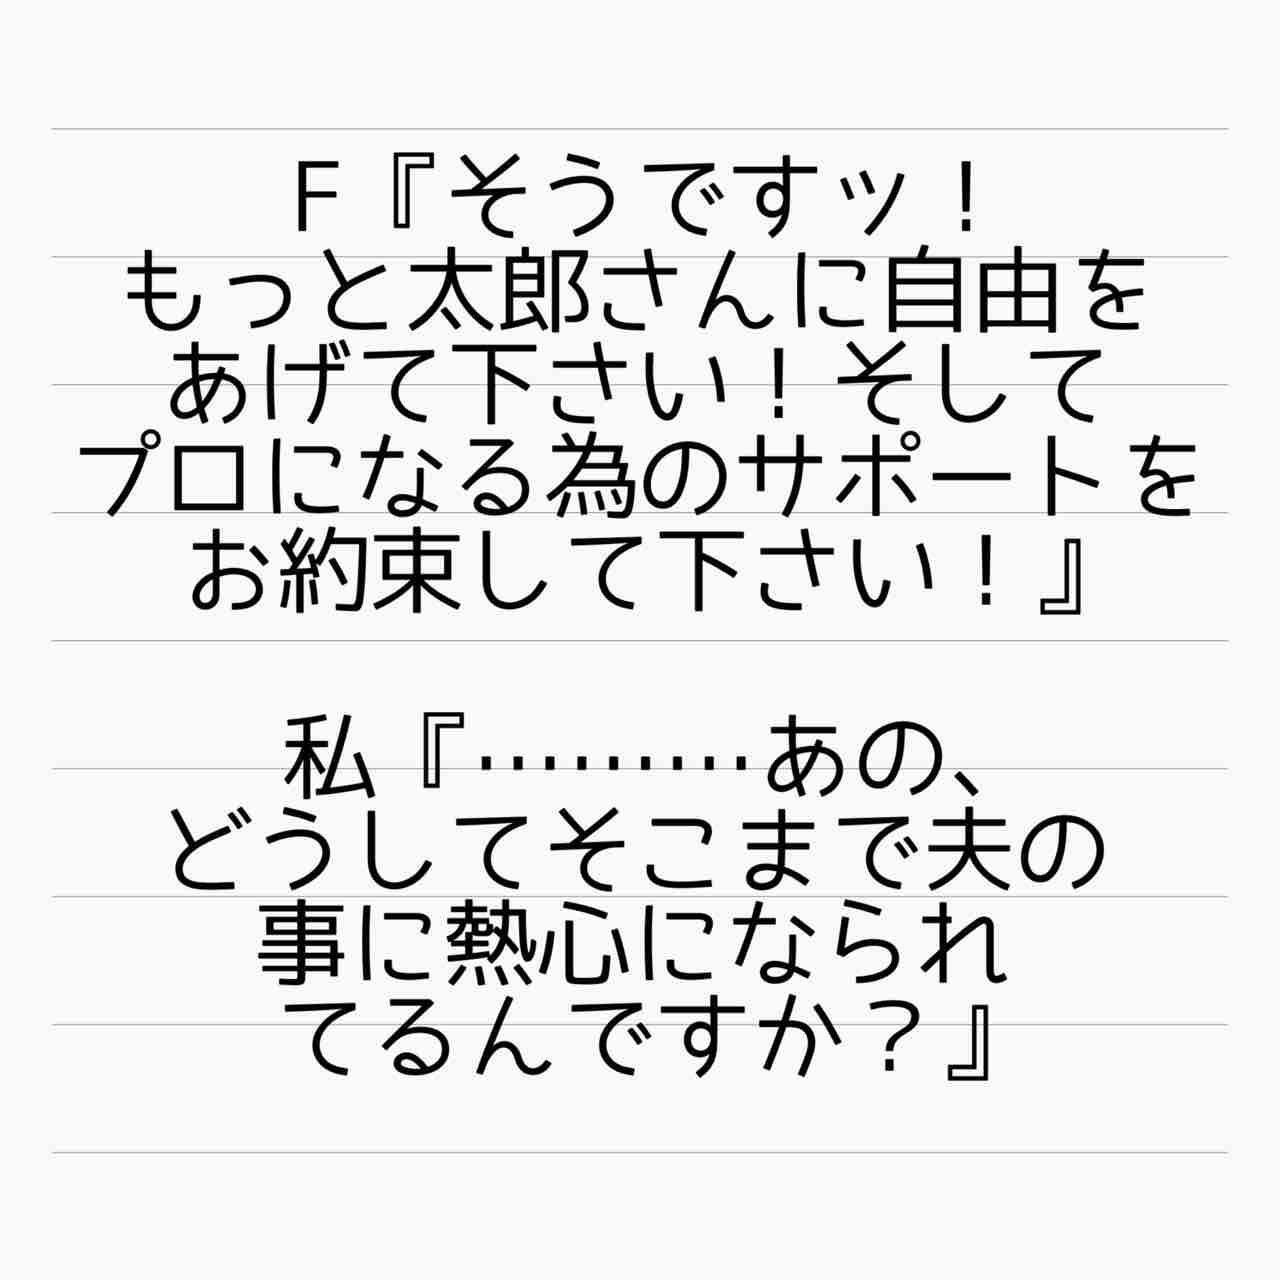 F『そうですッ！
もっと太郎さんに自由を
あげて下さい！そして
プロになる為のサポートを
お約束して下さい！』
私『………あの、
どうしてそこまで夫の
事に熱心になられ
てるんですか？』